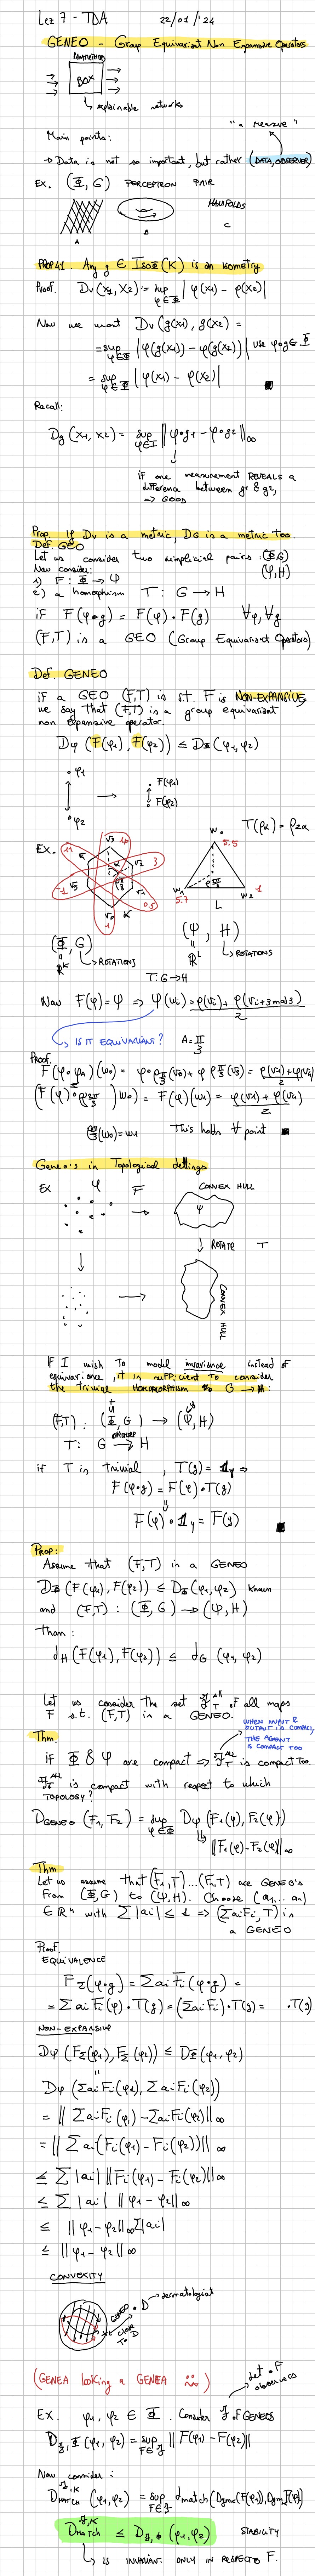 Lez 7 - TDA 22/01/'24
GENEO - Group Equivariant Non Expansive Operators
BOX
↳ explainable networks
"a measure"
Main points:
→ Data is not so important, but rather (DATA, OBSERVER)
EX. (Φ, G) PERCEPTRON PAIR
MANIFOLDS
A B C
PROP 4.1. Any g ∈ IsoΦ(K) is an isometry
Proof. Dv(x1, x2) := sup φ∈Φ |φ(x1) - φ(x2)|
Now we want Dv(g(x1), g(x2)) =
= sup φ∈Φ |φ(g(x1)) - φ(g(x2))| use φ∘g ∈ Φ
= sup φ∈Φ |φ(x1) - φ(x2)|
Recall:
Dg(x1, x2) = sup φ∈I ‖φ∘g1 - φ∘g2‖∞
IF one measurement REVEALS a
difference between g1 & g2,
=> GOOD
Prop. If Dv is a metric, DG is a metric too.
Def. GEO
Let us consider two simplicial pairs: (Φ,G)
(Ψ,H)
Now consider:
1) F: Φ → Ψ
2) a homorphism T: G → H
if F(φ∘g) = F(φ)∙F(g) ∀φ, ∀g
(F,T) is a GEO (Group Equivariant Operators)
Def. GENEO
if a GEO (F,T) is s.t. F is NON-EXPANSIVE,
we say that (F,T) is a group equivariant
non expansive operator.
Dψ(F(φ1), F(φ2)) ≤ DΦ(φ1, φ2)
φ1 F(φ1)
→ F(φ2)
φ2
T(ρα) = ρ2α
EX.
W0 5.5
W1 5.7 W2 1
L
(Φ, G) (Ψ, H)
ℝᴷ ↳ ROTATIONS ℝᴸ ↳ ROTATIONS
T: G→H
Now F(φ) = Ψ => ψ(wi) = φ(vi) + φ(vi+3 mod 3) / 2
↳ IS IT EQUIVARIANT? A = π/3
Proof.
This holds ∀ point
Geneo's in Topological settings
EX φ F CONVEX HULL
→ ψ
↓ ROTATE T
→ CONVEX HULL
IF I wish To model invariance instead of
equivariance, it is sufficient to consider
the trivial HOMOMORPHISM G → H:
(F,T) : (Φ, G) → (Ψ, H)
T: G → H
if T is trivial, T(g) = 1ψ =>
F(φ∘g) = F(φ)∘T(g)
F(φ)∘1ψ = F(g)
Prop:
Assume that (F,T) is a GENEO
DΦ(F(φ1), F(φ2)) ≤ DΦ(φ1, φ2) known
and (F,T) : (Φ, G) → (Ψ, H)
than:
dH(F(φ1), F(φ2)) ≤ dG(φ1, φ2)
Let us consider the set 𝓕T ALL of all maps
F s.t. (F,T) is a GENEO.
WHEN INPUT &
OUTPUT IS COMPACT,
THE AGENT
IS COMPACT TOO
Thm.
if Φ & Ψ are compact => 𝓕T ALL is compact too.
𝓕T ALL is compact with respect to which
TOPOLOGY?
DGENEO(F1, F2) = sup φ∈Φ Dψ(F1(φ), F2(φ))
↳ ‖F1(φ) - F2(φ)‖∞
Thm
Let us assume that (F1,T) ... (Fn,T) are GENEO's
from (Φ,G) to (Ψ,H). Choose (a1, ... an)
∈ ℝⁿ with Σ|ai| ≤ 1 => (ΣaiFi, T) is
a GENEO
Proof.
EQUIVALENCE
FΣ(φ∘g) = Σai Fi(φ∘g) =
= Σai Fi(φ)∙T(g) = (ΣaiFi)∙T(g) = ∙T(g)
NON-EXPANSIVE
Dψ(FΣ(φ1), FΣ(φ2)) ≤ DΦ(φ1, φ2)
Dψ(ΣaiFi(φ1), ΣaiFi(φ2))
= ‖ΣaiFi(φ1) - ΣaiFi(φ2)‖∞
= ‖Σai(Fi(φ1) - Fi(φ2))‖∞
≤ Σ|ai| ‖Fi(φ1) - Fi(φ2)‖∞
≤ Σ|ai| ‖φ1 - φ2‖∞
≤ ‖φ1 - φ2‖∞ Σ|ai|
≤ ‖φ1 - φ2‖∞
CONVEXITY
GENEO D → dermatologist
CLOSE TO D
(GENEA looking a GENEA)
set of F
observers
EX. φ1, φ2 ∈ Φ. Consider 𝓕 of GENEOS
D𝓕,Φ(φ1, φ2) = sup F∈𝓕 ‖F(φ1) - F(φ2)‖
Now consider:
DMATCH 𝓕,K (φ1, φ2) = sup F∈𝓕 dmatch(Dgmk(F(φ1)), Dgmk(F(φ2)))
DMATCH 𝓕,K ≤ D𝓕,Φ(φ1, φ2) STABILITY
↳ IS INVARIANT ONLY IN RESPECT TO F.